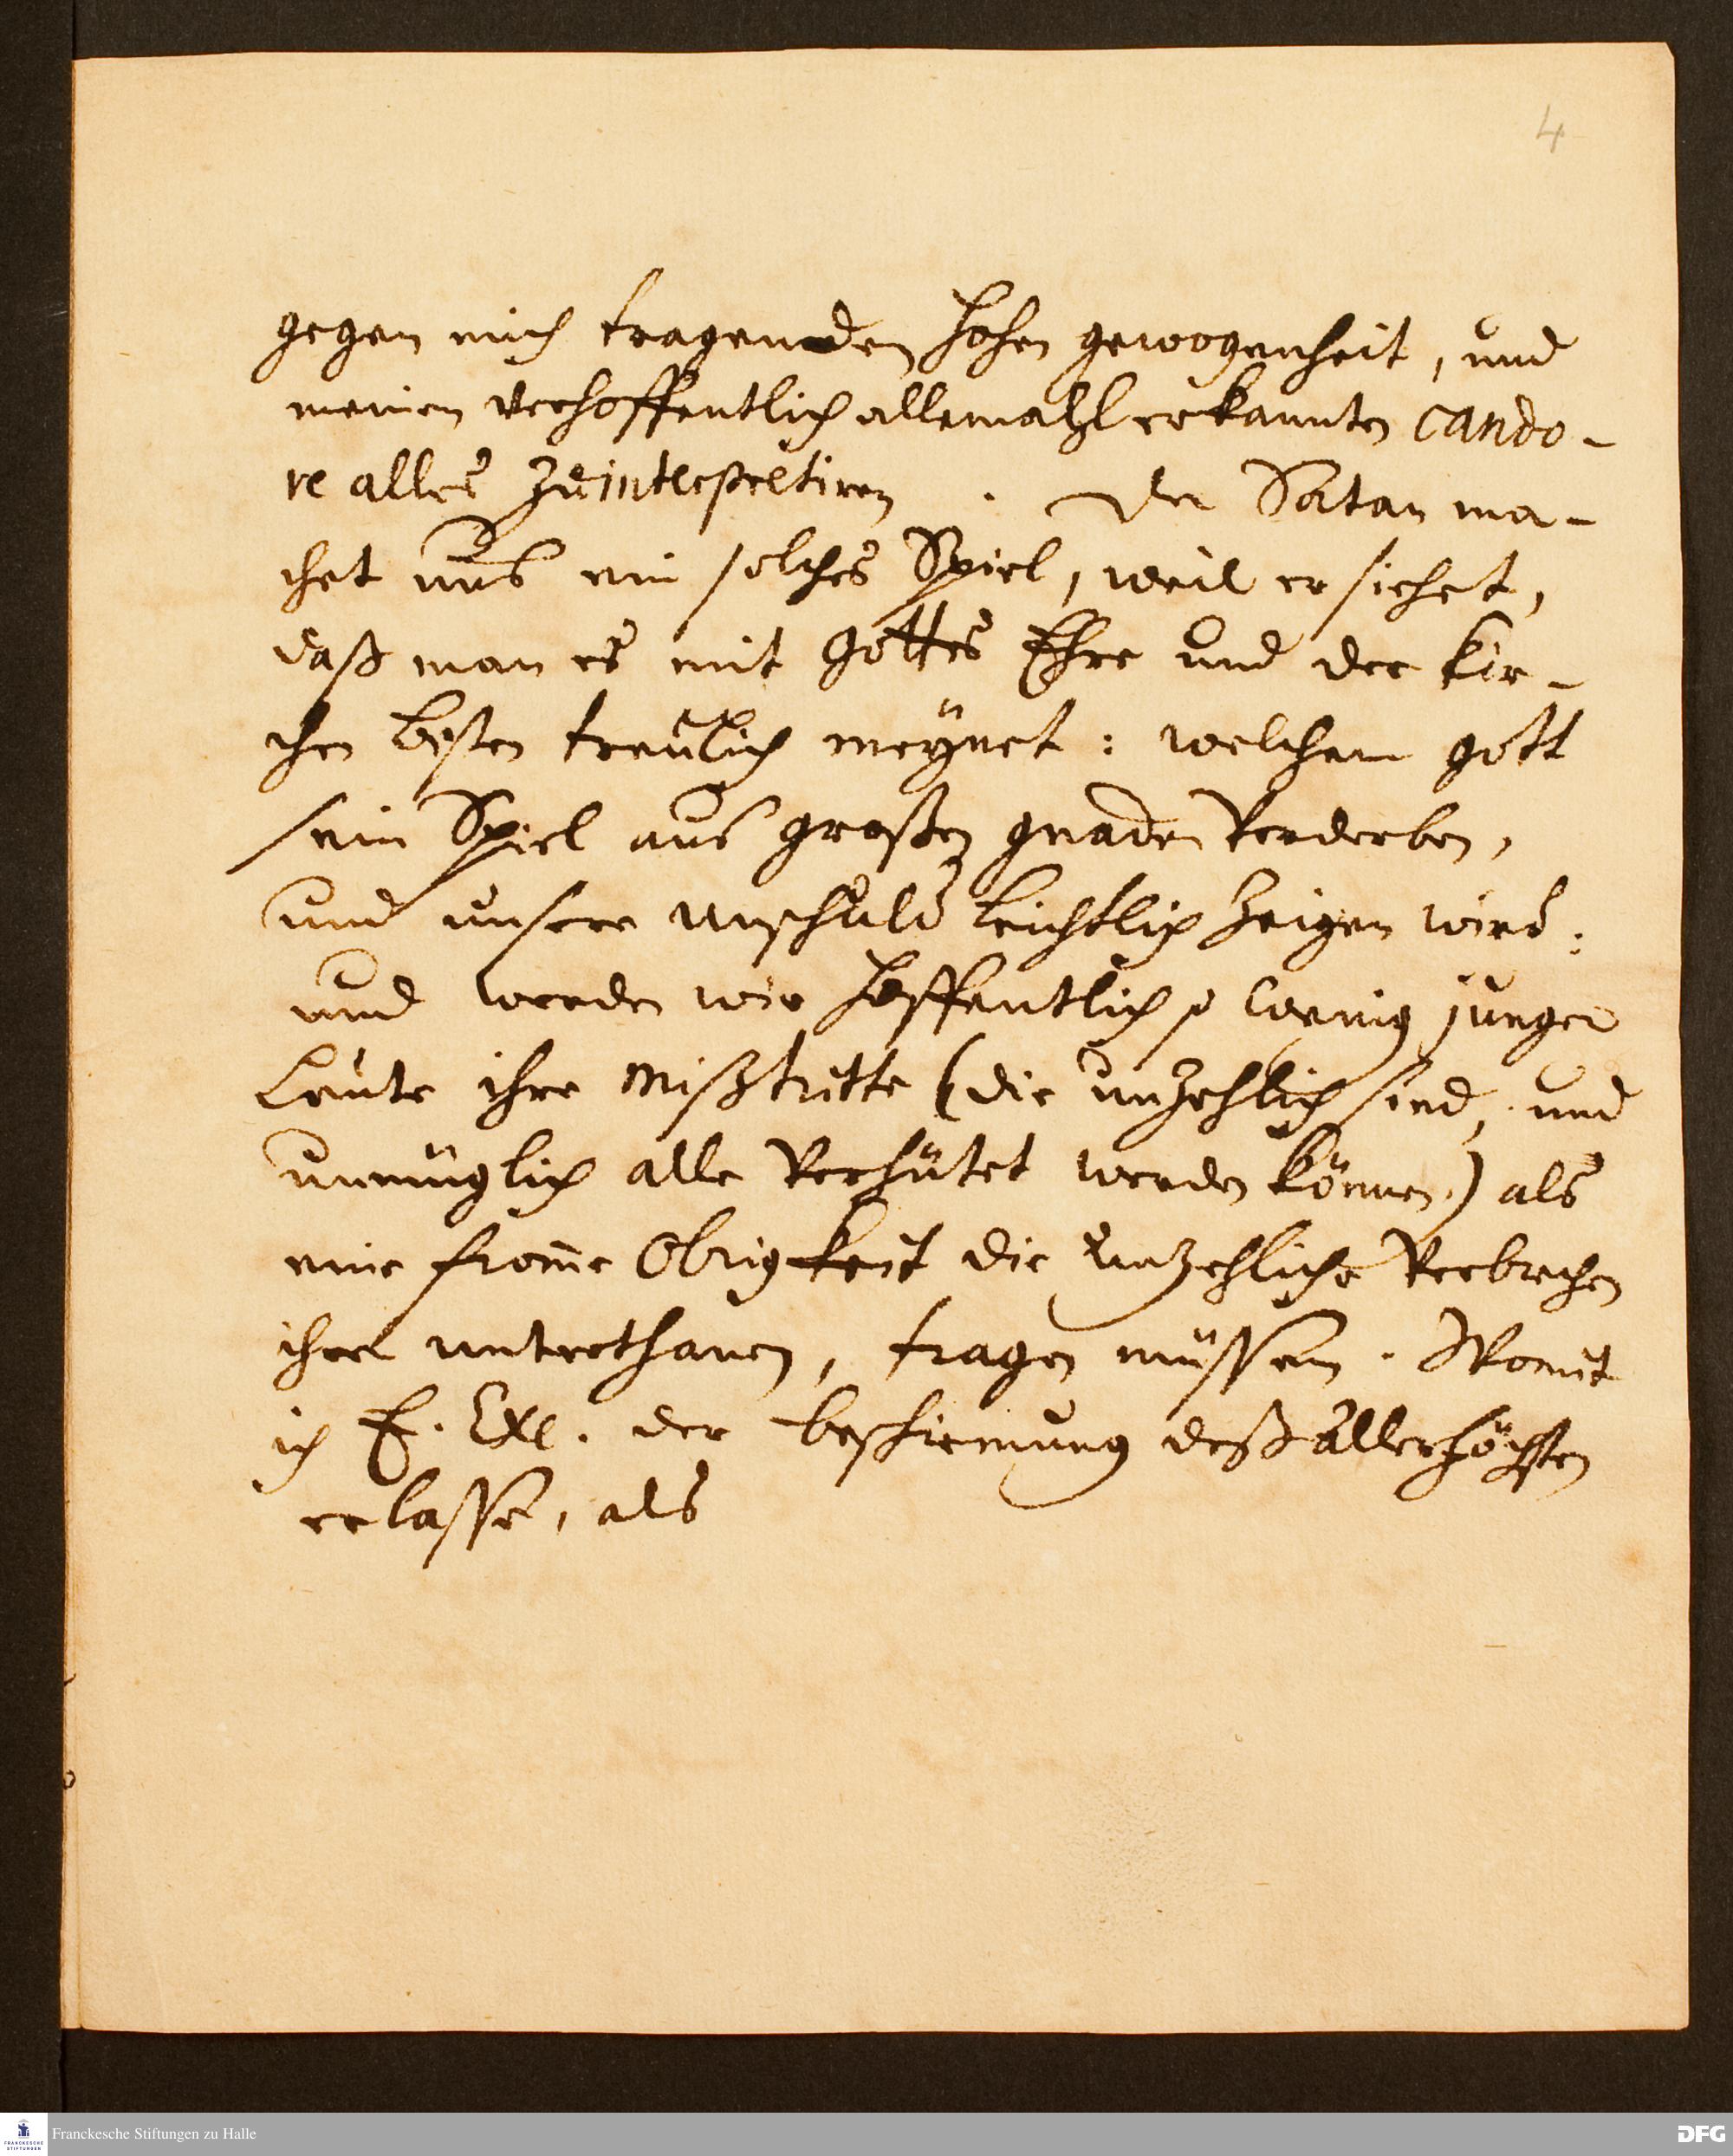 4
gegen mich tragenden hohen gewogenheit, und
meinen verhoffentlich allemahl erkannten cando-
re alles zu interpretiren. Der Satan ma-
chet uns ein solches Spiel, weil er siehet,
daß man es mit Gottes Ehre und der Kir-
chen besten treulich meÿnet: welchem Gott
sein Spiel aus großen gnaden Verderben,
und unsere unschuld leichtlich zeigen wird:
und werden wir hoffentlich so wenig junger
Leute ihre Mißtritte (die unzehlich sind, und
unmüglich alle Verhütet werden können) als
eine from̅e Obrigkeit die unzehliche Verbrechen
ihrer unterthanen, tragen müssen. Womit
ich E. Exc. der beschirmung deß allerhöchsten
erlasse, als
FRANCKESCHE STIFTUNGEN
Franckesche Stiftungen zu Halle
DFG